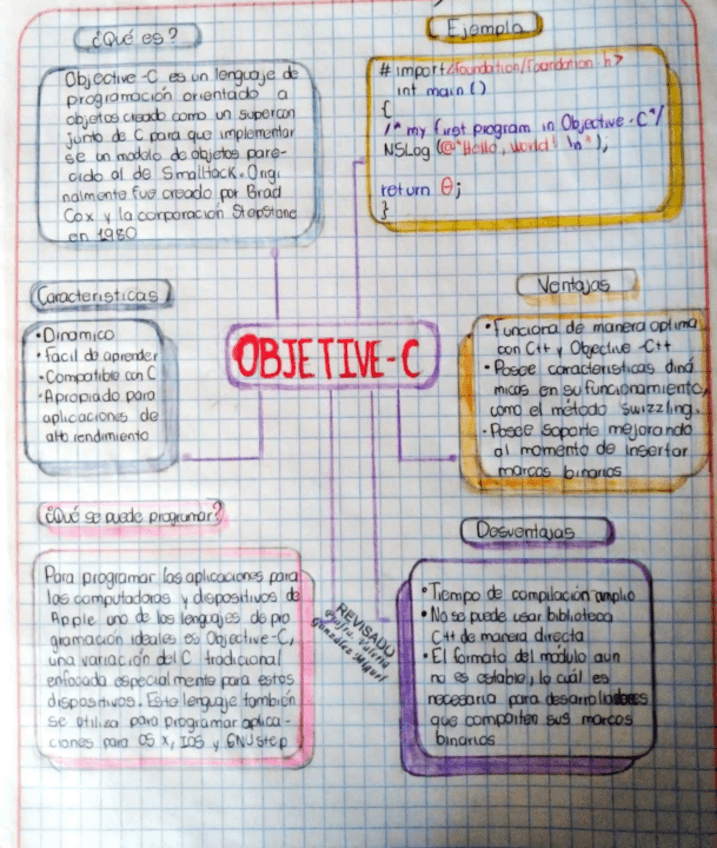 ¿Qué es?
Objective-C es un lenguaje de
programación orientado a
objetos creado como un supercon
junto de C para que implementar
se un modelo de objetos pare-
cido al de Smalltack. Origi
nalmente fue creado por Brad
Cox y la corporación StepStone
en 1980
Ejemplo
# import </foundation/Foundation.h>
int main ()
{
/* my first program in Objective-C */
NSLog (@"Hello, World! \n");
return 0;
}
Caracteristicas
•Dinamico
•facil de aprender
•Compatible con C
•Apropiado para
aplicaciones de
alto rendimiento
OBJETIVE-C
Ventajas
•Funciona de manera optima
con C++ y Objective-C++
•Posee caracteristicas diná
micas en su funcionamiento,
como el método swizzling.
•Posee soporte mejorando
al momento de insertar
marcos binarios
¿Qué se puede programar?
Para programar las aplicaciones para
las computadoras y dispositivos de
Apple uno de los lenguajes de pro
gramación ideales es Objective-C,
una variación del C tradicional
enfocada especialmente para estos
dispositivos. Este lenguaje también
se utiliza para programar aplica-
ciones para OS X, IOS y GNUstep
REVISADO
Profra. Valeria
González Miguel
Desventajas
•Tiempo de compilación amplio
•No se puede usar biblioteca
C++ de manera directa
•El formato del módulo aun
no es estable, lo cuál es
necesario para desarrolladores
que comparten sus marcos
binarios